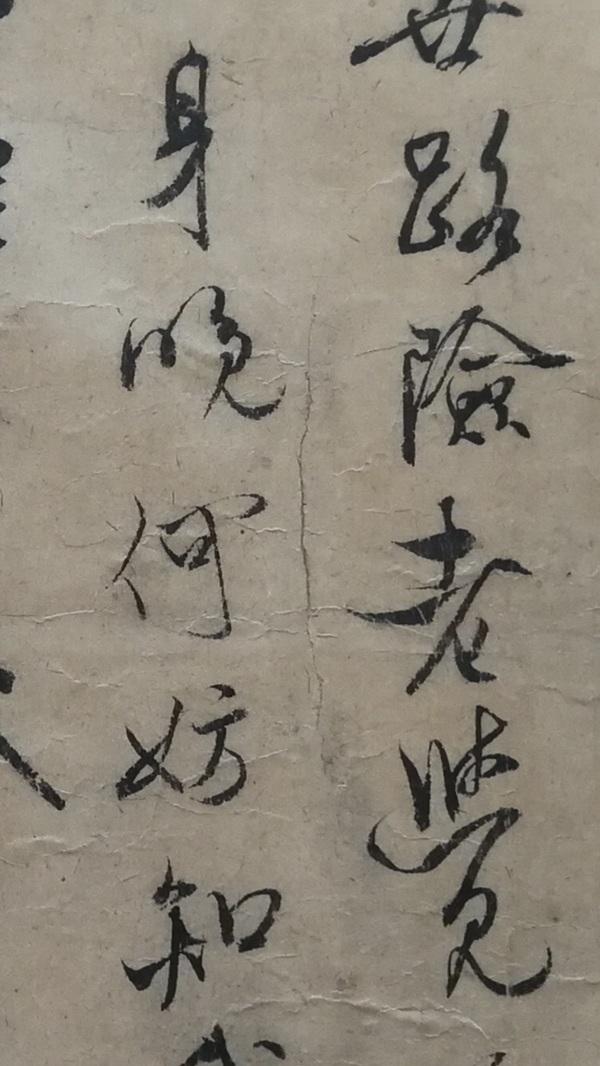 世路險老覺
身晚何妨知